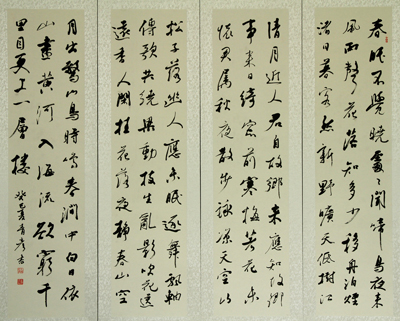 春眠不覺曉處處聞啼鳥夜來
風雨聲花落知多少移舟泊煙
渚日暮客愁新野曠天低樹江
清月近人君自故鄉來應知故鄉
事來日綺窗前寒梅著花未
懷君屬秋夜散步詠涼天空山
松子落幽人應未眠逐舞飄
傳歌共繞梁動枝生亂影吹花送
遠香人閒桂花落夜靜春山空
月出驚山鳥時鳴春澗中白日依
山盡黃河入海流欲窮千
里目更上一層樓 癸巳夏